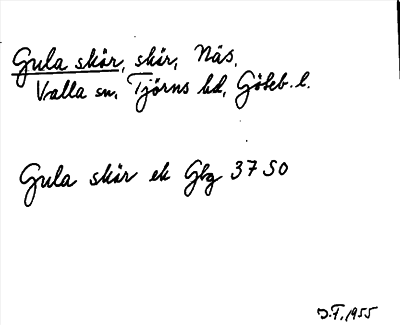 Gula skär, skär, Näs,
Valla sn, Tjörns hd, Göteb. l.
Gula skär ek Gbg 37 SO
J.F. 1955